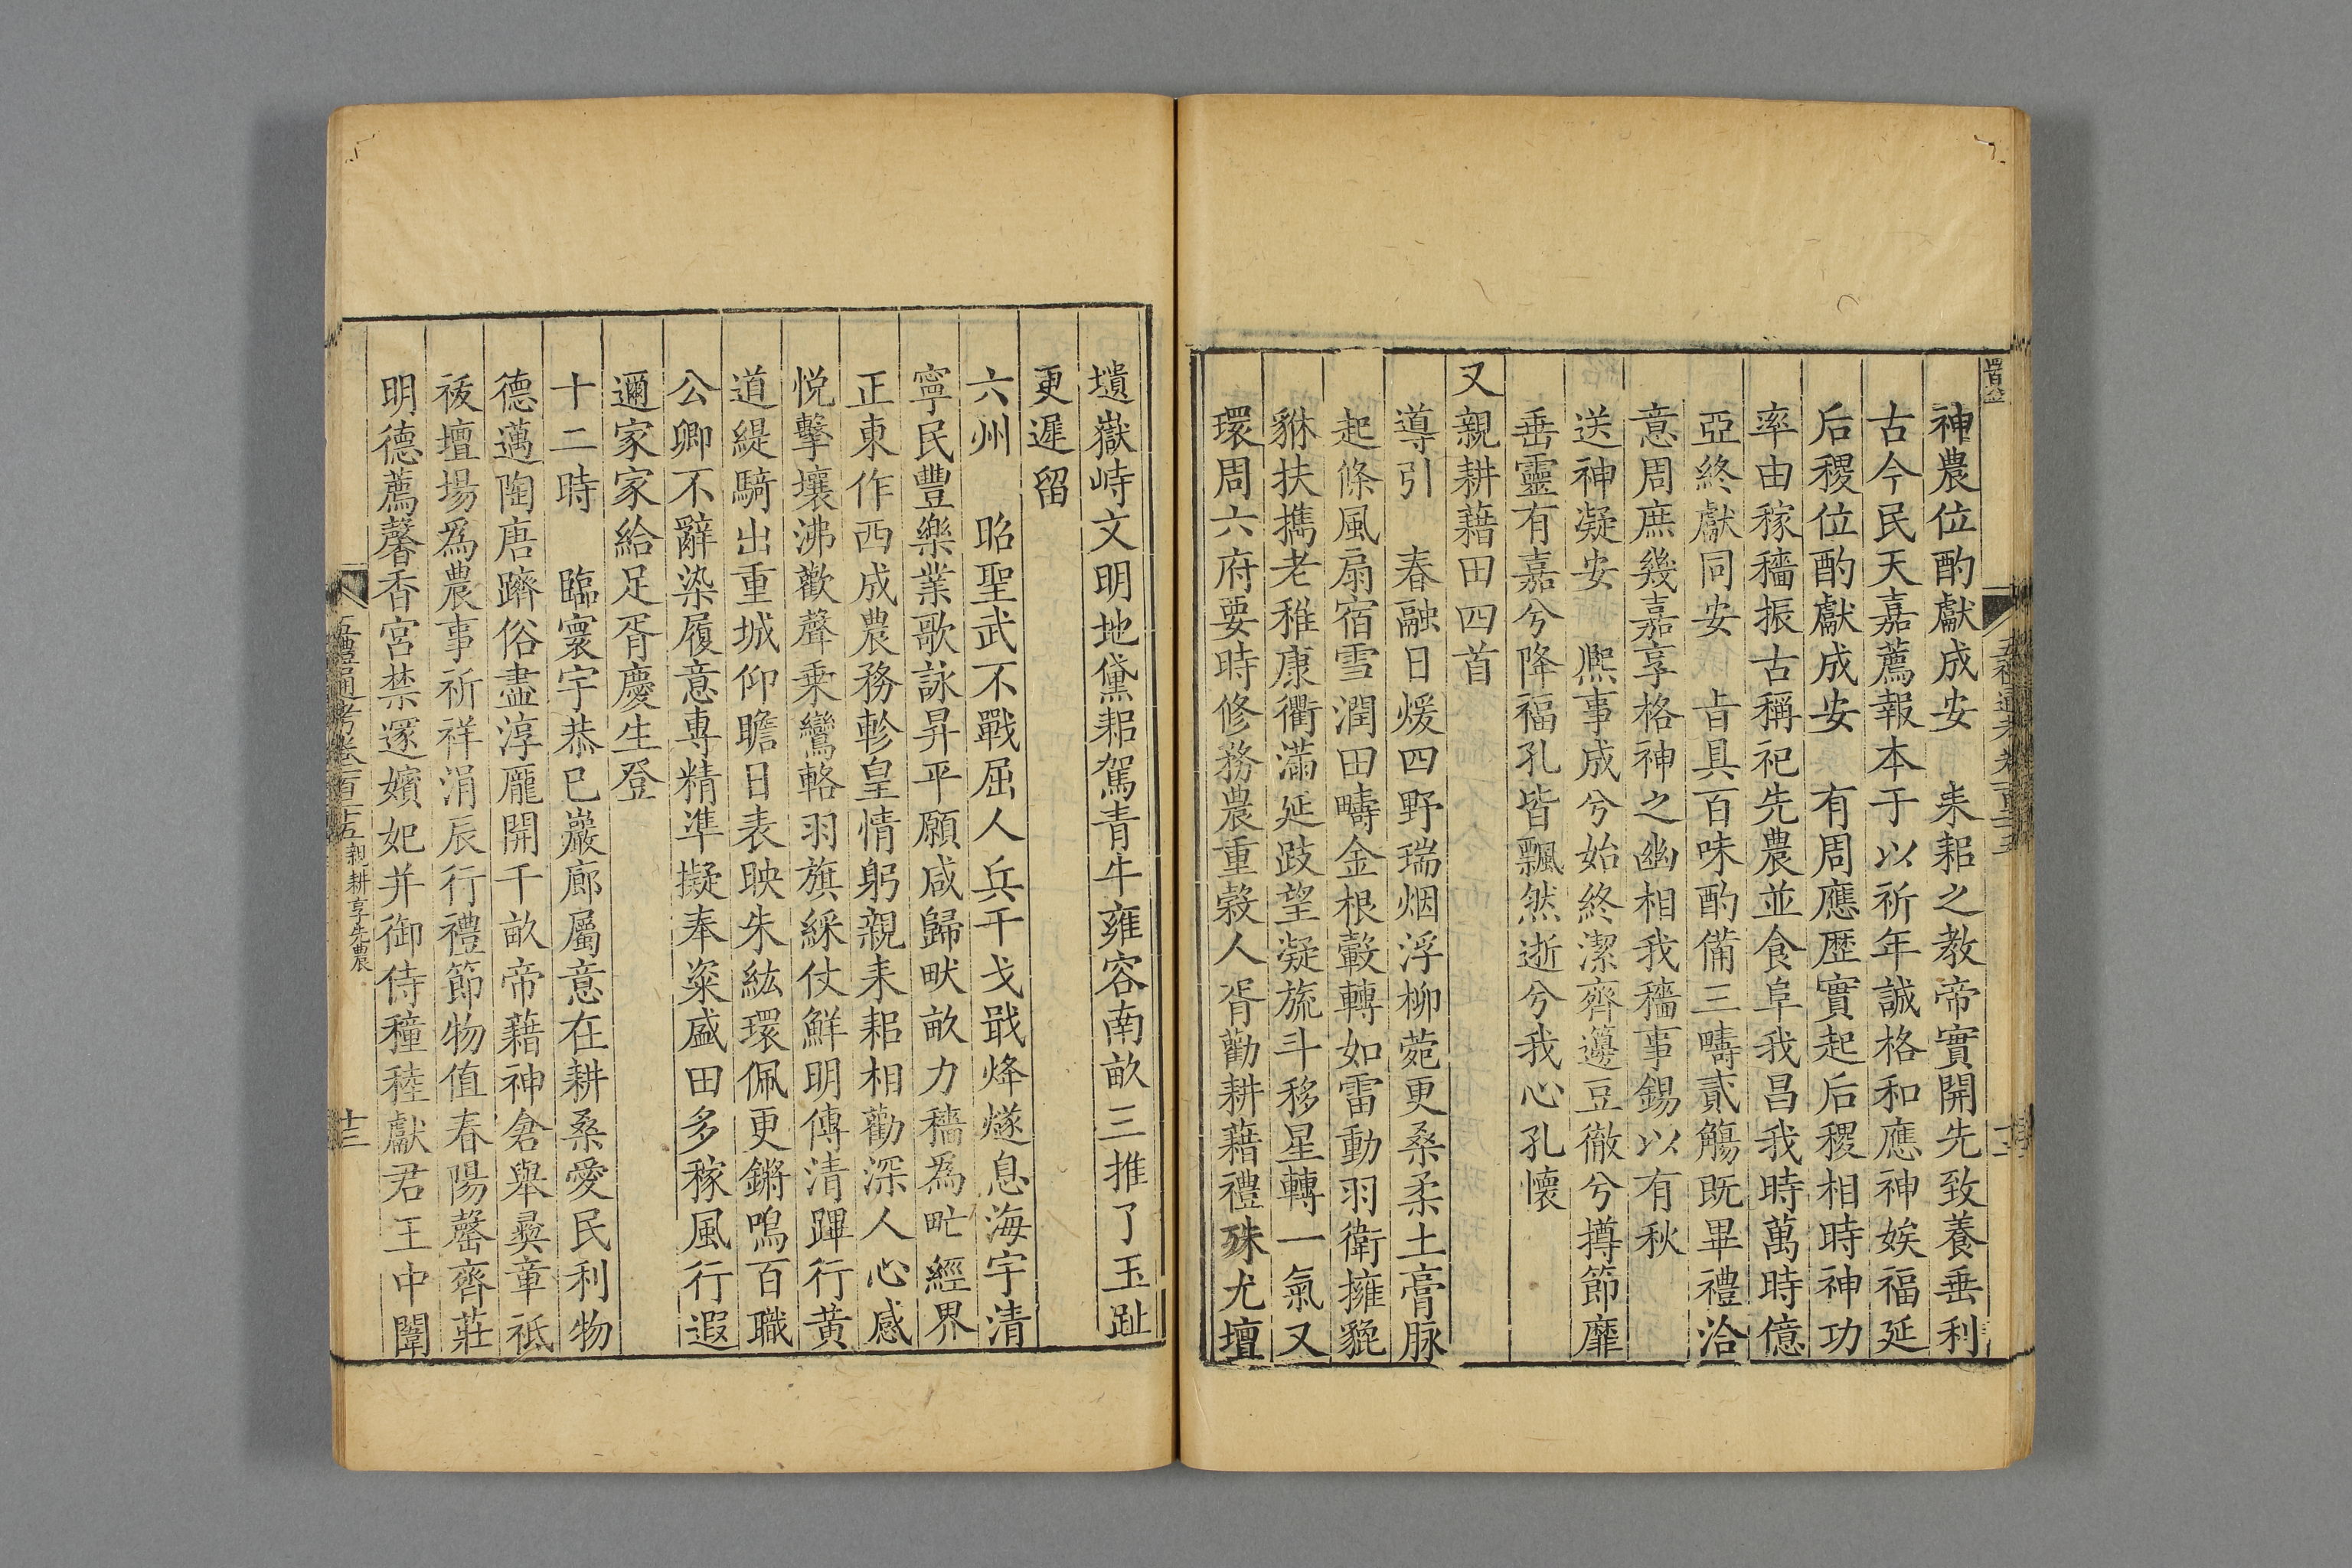 神農位酌獻成安　耒耜之教帝實開先致養垂利
古今民天嘉薦報本于以祈年誠格和應神娭福延
后稷位酌獻成安　有周膺歷實起后稷相時神功
率由稼穡振古稱祀先農並食阜我昌我時萬時億
亞終獻同安　㫖具百味酌備三疇貳觴既畢禮洽
意周庶幾嘉享格神之幽相我穡事錫以有秋
送神凝安　熙事成兮始終潔齊籩豆徹兮撙節靡
垂靈有嘉兮降福孔皆飄然逝兮我心孔懷
又親耕藉田四首
導引　春融日煖四野瑞烟浮柳菀更桑柔土膏脉
起條風扇宿雪潤田疇金根轂轉如雷動羽衛擁貔
貅扶攜老稚康衢滿延跂望凝旒斗移星轉一氣又
環周六府要時修務農重榖人胥勸耕藉禮殊尤壇
壝嶽峙文明地黛耜駕青牛雍容南畝三推了玉趾
更遲留
六州　昭聖武不戰屈人兵干戈戢烽燧息海宇清
寧民豐樂業歌詠昇平願咸歸畎畝力穡爲甿經界
正東作西成農務軫皇情躬親耒耜相勸深人心感
悅擊壤沸歡聲乗鸞輅羽旗綵仗鮮明傳清蹕行黄
道緹騎出重城仰瞻日表映朱紘環佩更鏘鳴百職
公卿不辭染履意專精準擬奉粢盛田多稼風行遐
邇家家給足胥慶生登
十二時　臨寰宇恭已巖廊屬意在耕桑愛民利物
德邁陶唐躋俗盡淳厖開千畝帝藉神倉舉彛章祗
祓壇場爲農事祈祥涓辰行禮節物值春陽罄齊莊
明德薦馨香宮禁邃嬪妃并御侍穜稑獻君王中闈
五禮通考卷一百二十五親耕享先農　十三